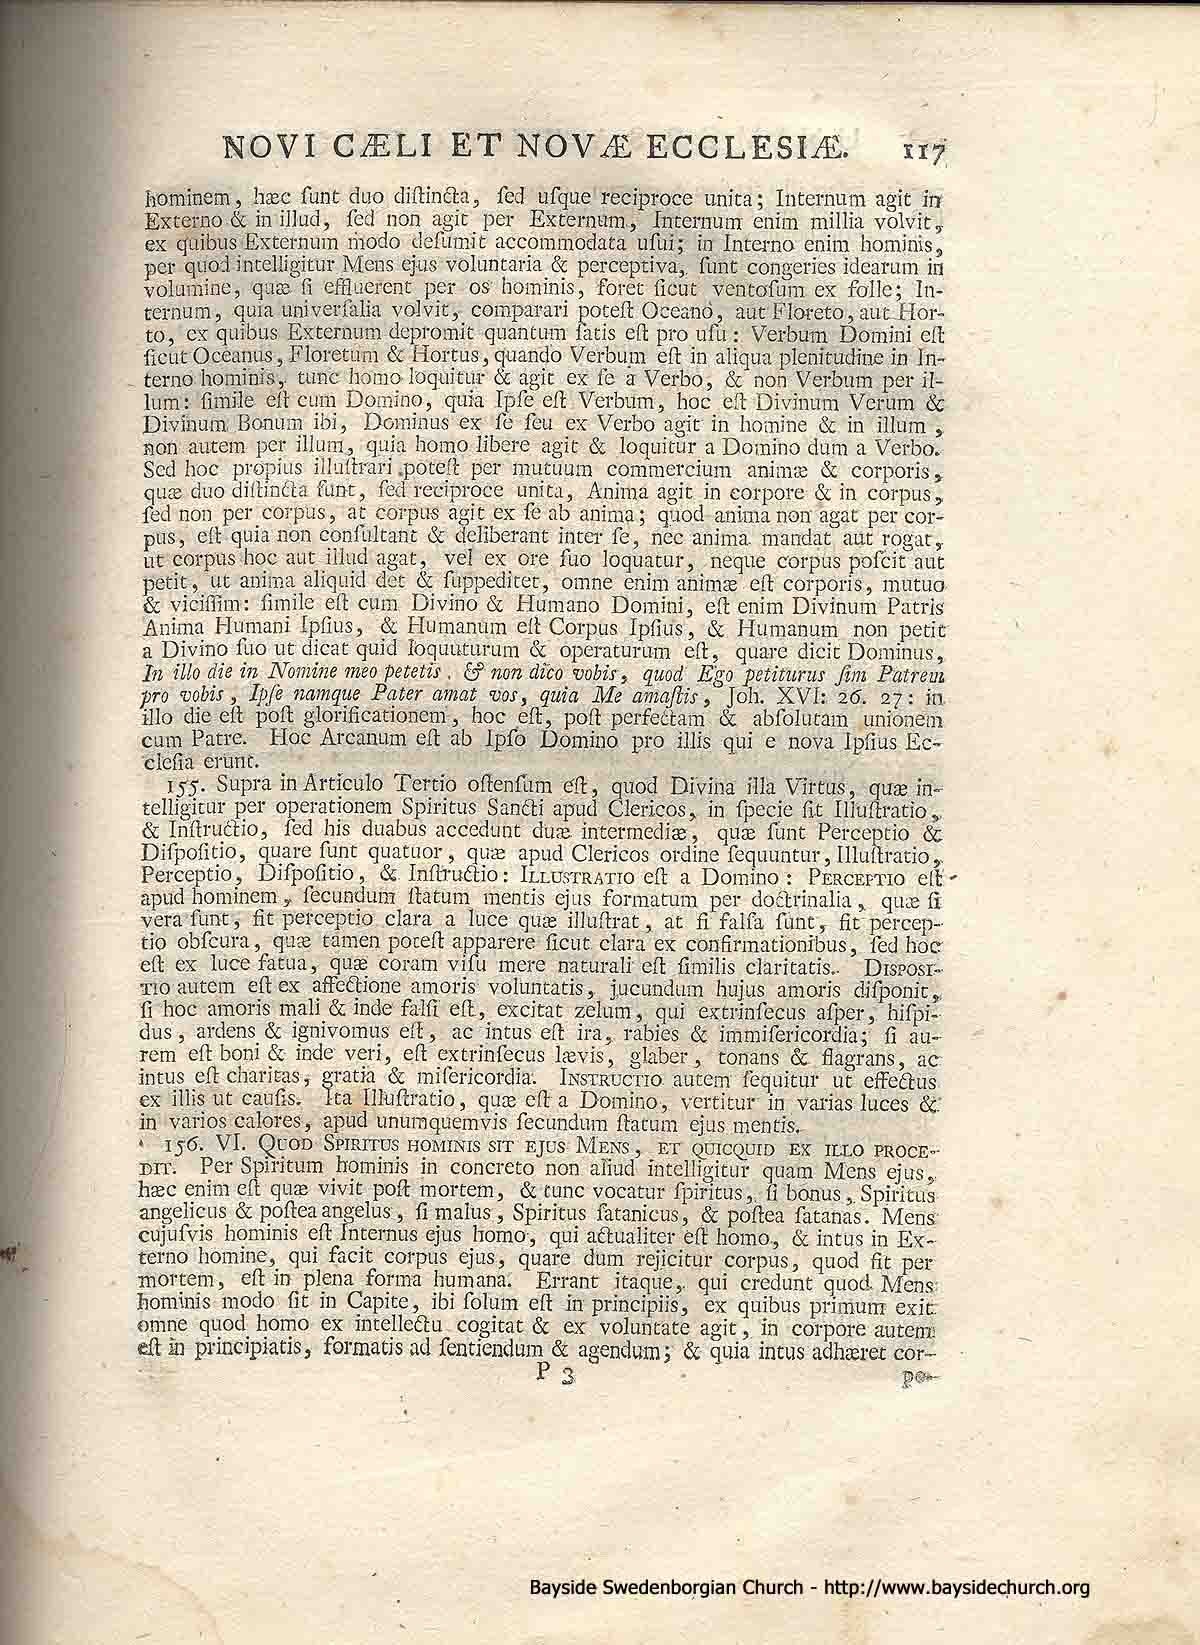 NOVI CÆLI ET NOVÆ ECCLESIÆ. 117
hominem, hæc ſunt duo diſtincta, ſed uſque reciproce unita; Internum agit in
Externo & in illud, ſed non agit per Externum, Internum enim millia volvit,
ex quibus Externum modo deſumit accommodata uſui; in Interno enim hominis,
per quod intelligitur Mens ejus voluntaria & perceptiva, ſunt congeries idearum in
volumine, quæ ſi effluerent per os hominis, foret ſicut ventoſum ex folle; In-
ternum, quia univerſalia volvit, comparari poteſt Oceano, aut Floreto, aut Hor-
to, ex quibus Externum depromit quantum ſatis eſt pro uſu: Verbum Domini eſt
ſicut Oceanus, Floretum & Hortus, quando Verbum eſt in aliqua plenitudine in In-
terno hominis, tunc homo loquitur & agit ex ſe a Verbo, & non Verbum per il-
lum: ſimile eſt cum Domino, quia Ipſe eſt Verbum, hoc eſt Divinum Verum &
Divinum Bonum ibi, Dominus ex ſe ſeu ex Verbo agit in homine & in illum,
non autem per illum, quia homo libere agit & loquitur a Domino dum a Verbo.
Sed hoc propius illuſtrari poteſt per mutuum commercium animæ & corporis,
quæ duo diſtincta ſunt, ſed reciproce unita, Anima agit in corpore & in corpus,
ſed non per corpus, at corpus agit ex ſe ab anima; quod anima non agat per cor-
pus, eſt quia non conſultant & deliberant inter ſe, nec anima mandat aut rogat,
ut corpus hoc aut illud agat, vel ex ore ſuo loquatur, neque corpus poſcit aut
petit, ut anima aliquid det & ſuppeditet, omne enim animæ eſt corporis, mutuo
& viciſſim: ſimile eſt cum Divino & Humano Domini, eſt enim Divinum Patris
Anima Humani Ipſius, & Humanum eſt Corpus Ipſius, & Humanum non petit
a Divino ſuo ut dicat quid loquuturum & operaturum eſt, quare dicit Dominus,
In illo die in Nomine meo petetis, & non dico vobis, quod Ego petiturus ſim Patrem
pro vobis, Ipſe namque Pater amat vos, quia Me amaſtis, Joh. XVI: 26. 27: in
illo die eſt poſt glorificationem, hoc eſt, poſt perfectam & abſolutam unionem
cum Patre. Hoc Arcanum eſt ab Ipſo Domino pro illis qui e nova Ipſius Ec-
cleſia erunt.
155. Supra in Articulo Tertio oſtenſum eſt, quod Divina illa Virtus, quæ in-
telligitur per operationem Spiritus Sancti apud Clericos, in ſpecie ſit Illuſtratio,
& Inſtructio, ſed his duabus accedunt duæ intermediæ, quæ ſunt Perceptio &
Diſpoſitio, quare ſunt quatuor, quæ apud Clericos ordine ſequuntur, Illuſtratio,
Perceptio, Diſpoſitio, & Inſtructio: ILLUSTRATIO eſt a Domino: PERCEPTIO eſt
apud hominem, ſecundum ſtatum mentis ejus formatum per doctrinalia, quæ ſi
vera ſunt, fit perceptio clara a luce quæ illuſtrat, at ſi falſa ſunt, fit percep-
tio obſcura, quæ tamen poteſt apparere ſicut clara ex confirmationibus, ſed hoc
eſt ex luce fatua, quæ coram viſu mere naturali eſt ſimilis claritatis. DISPOSI-
TIO autem eſt ex affectione amoris voluntatis, jucundum hujus amoris diſponit,
ſi hoc amoris mali & inde falſi eſt, excitat zelum, qui extrinſecus aſper, hiſpi-
dus, ardens & ignivomus eſt, ac intus eſt ira, rabies & immiſericordia; ſi au-
rem eſt boni & inde veri, eſt extrinſecus lævis, glaber, tonans & flagrans, ac
intus eſt charitas, gratia & miſericordia. INSTRUCTIO autem ſequitur ut effectus
ex illis ut cauſis. Ita Illuſtratio, quæ eſt a Domino, vertitur in varias luces &
in varios calores, apud unumquemvis ſecundum ſtatum ejus mentis.
156. VI. QUOD SPIRITUS HOMINIS SIT EJUS MENS, ET QUICQUID EX ILLO PROCE-
DIT. Per Spiritum hominis in concreto non aliud intelligitur quam Mens ejus,
hæc enim eſt quæ vivit poſt mortem, & tunc vocatur ſpiritus, ſi bonus, Spiritus
angelicus & poſtea angelus, ſi malus, Spiritus ſatanicus, & poſtea ſatanas. Mens
cujuſvis hominis eſt Internus ejus homo, qui actualiter eſt homo, & intus in Ex-
terno homine, qui facit corpus ejus, quare dum rejicitur corpus, quod fit per
mortem, eſt in plena forma humana. Errant itaque, qui credunt quod Mens
hominis modo ſit in Capite, ibi ſolum eſt in principiis, ex quibus primum exit
omne quod homo ex intellectu cogitat & ex voluntate agit, in corpore autem
eſt in principiatis, formatis ad ſentiendum & agendum; & quia intus adhæret cor-
P 3 po-
Bayside Swedenborgian Church - http://www.baysidechurch.org